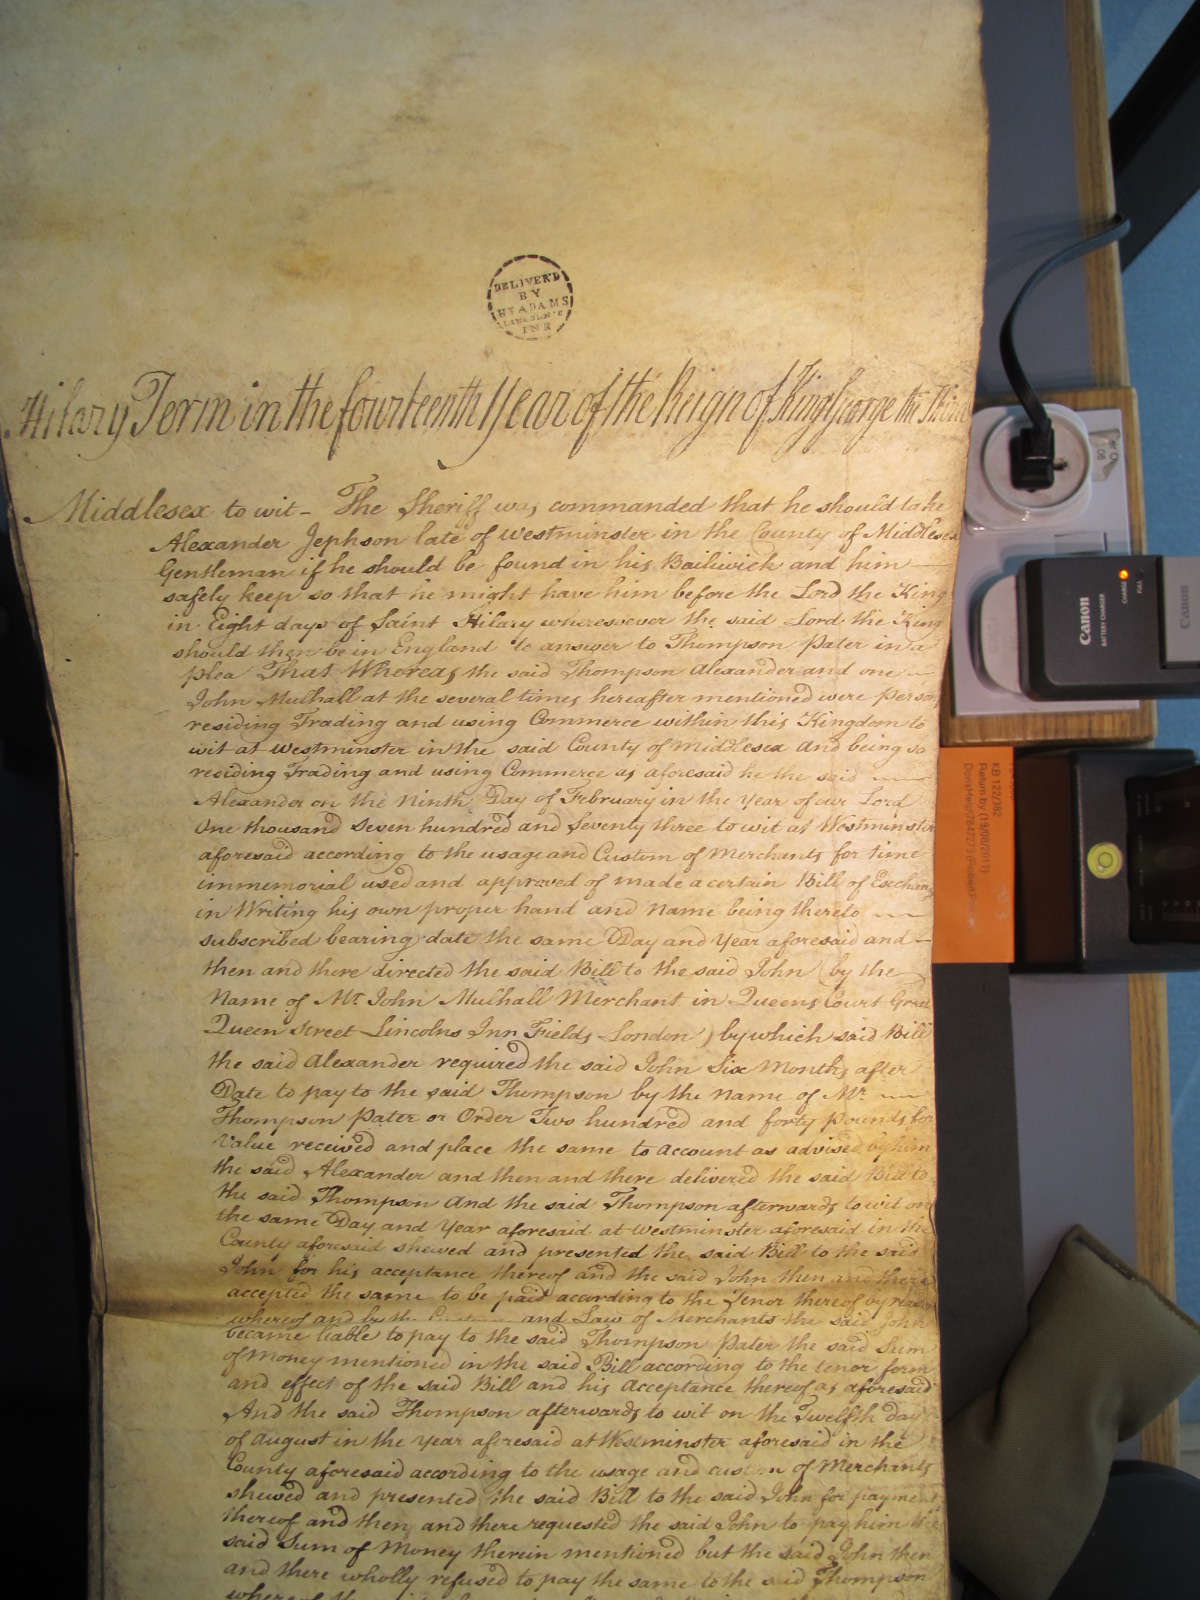 DELIVER'D
BY
HY ADAMS
LINCOLN'S
INN
Hilary Term in the fourteenth Year of the Reign of King George the Third
Middlesex to wit - The Sheriff was commanded that he should take
Alexander Jephson late of Westminster in the County of Middlesex
Gentleman if he should be found in his Bailiwick and him
safely keep so that he might have him before the Lord the King
in Eight days of Saint Hilary wheresoever the said Lord the King
should then be in England to answer to Thompson Pater in a
plea That Whereas the said Thompson Alexander and one
John Mulhall at the several times hereafter mentioned were person
residing Trading and using Commerce within this Kingdom to
wit at Westminster in the said County of Middlesex And being so
residing Trading and using Commerce as aforesaid he the said
Alexander on the Ninth Day of February in the Year of our Lord
One thousand Seven hundred and Seventy three to wit at Westminster
aforesaid according to the usage and Custom of Merchants for time
immemorial used and approved of made a certain Bill of Exchan
in Writing his own proper hand and Name being thereto
subscribed bearing date the same Day and Year aforesaid and
then and there directed the said Bill to the said John (by the
Name of Mr John Mulhall Merchant in Queens Court Great
Queen Street Lincolns Inn Fields London) by which said Bill
the said Alexander required the said John Six Months after
Date to pay to the said Thompson by the name of Mr
Thompson Pater or Order Two hundred and forty Pounds for
Value received and place the same to Account as advised by him
the said Alexander and then and there delivered the said Bill to
the said Thompson And the said Thompson afterwards to wit on
the same Day and Year aforesaid at Westminster aforesaid in the
County aforesaid shewed and presented the said Bill to the said
John for his acceptance thereof and the said John then and there
accepted the same to be paid according to the Tenor thereof by reason
whereof and by the and Law of Merchants the said John
became liable to pay to the said Thompson Pater the said Sum
of Money mentioned in the said Bill according to the tenor form
and effect of the said Bill and his Acceptance thereof as aforesaid
And the said Thompson afterwards to wit on the Twelfth day
of August in the Year aforesaid at Westminster aforesaid in the
County aforesaid according to the usage and custom of Merchants
shewed and presented the said Bill to the said John for payment
thereof and then and there requested the said John to pay him the
said Sum of Money therein mentioned but the said John then
and there wholly refused to pay the same to the said Thompson
Canon
BATTERY CHARGER
CHARGE
FULL
Canon
KB 122/382
Return by (19/08/2011)